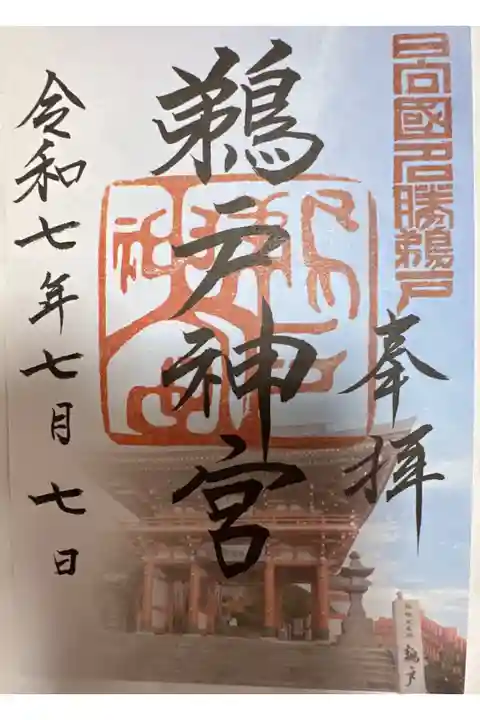 日向國名勝鵜戸
奉拝
鵜戸神宮
令和七年七月七日
鵜戸